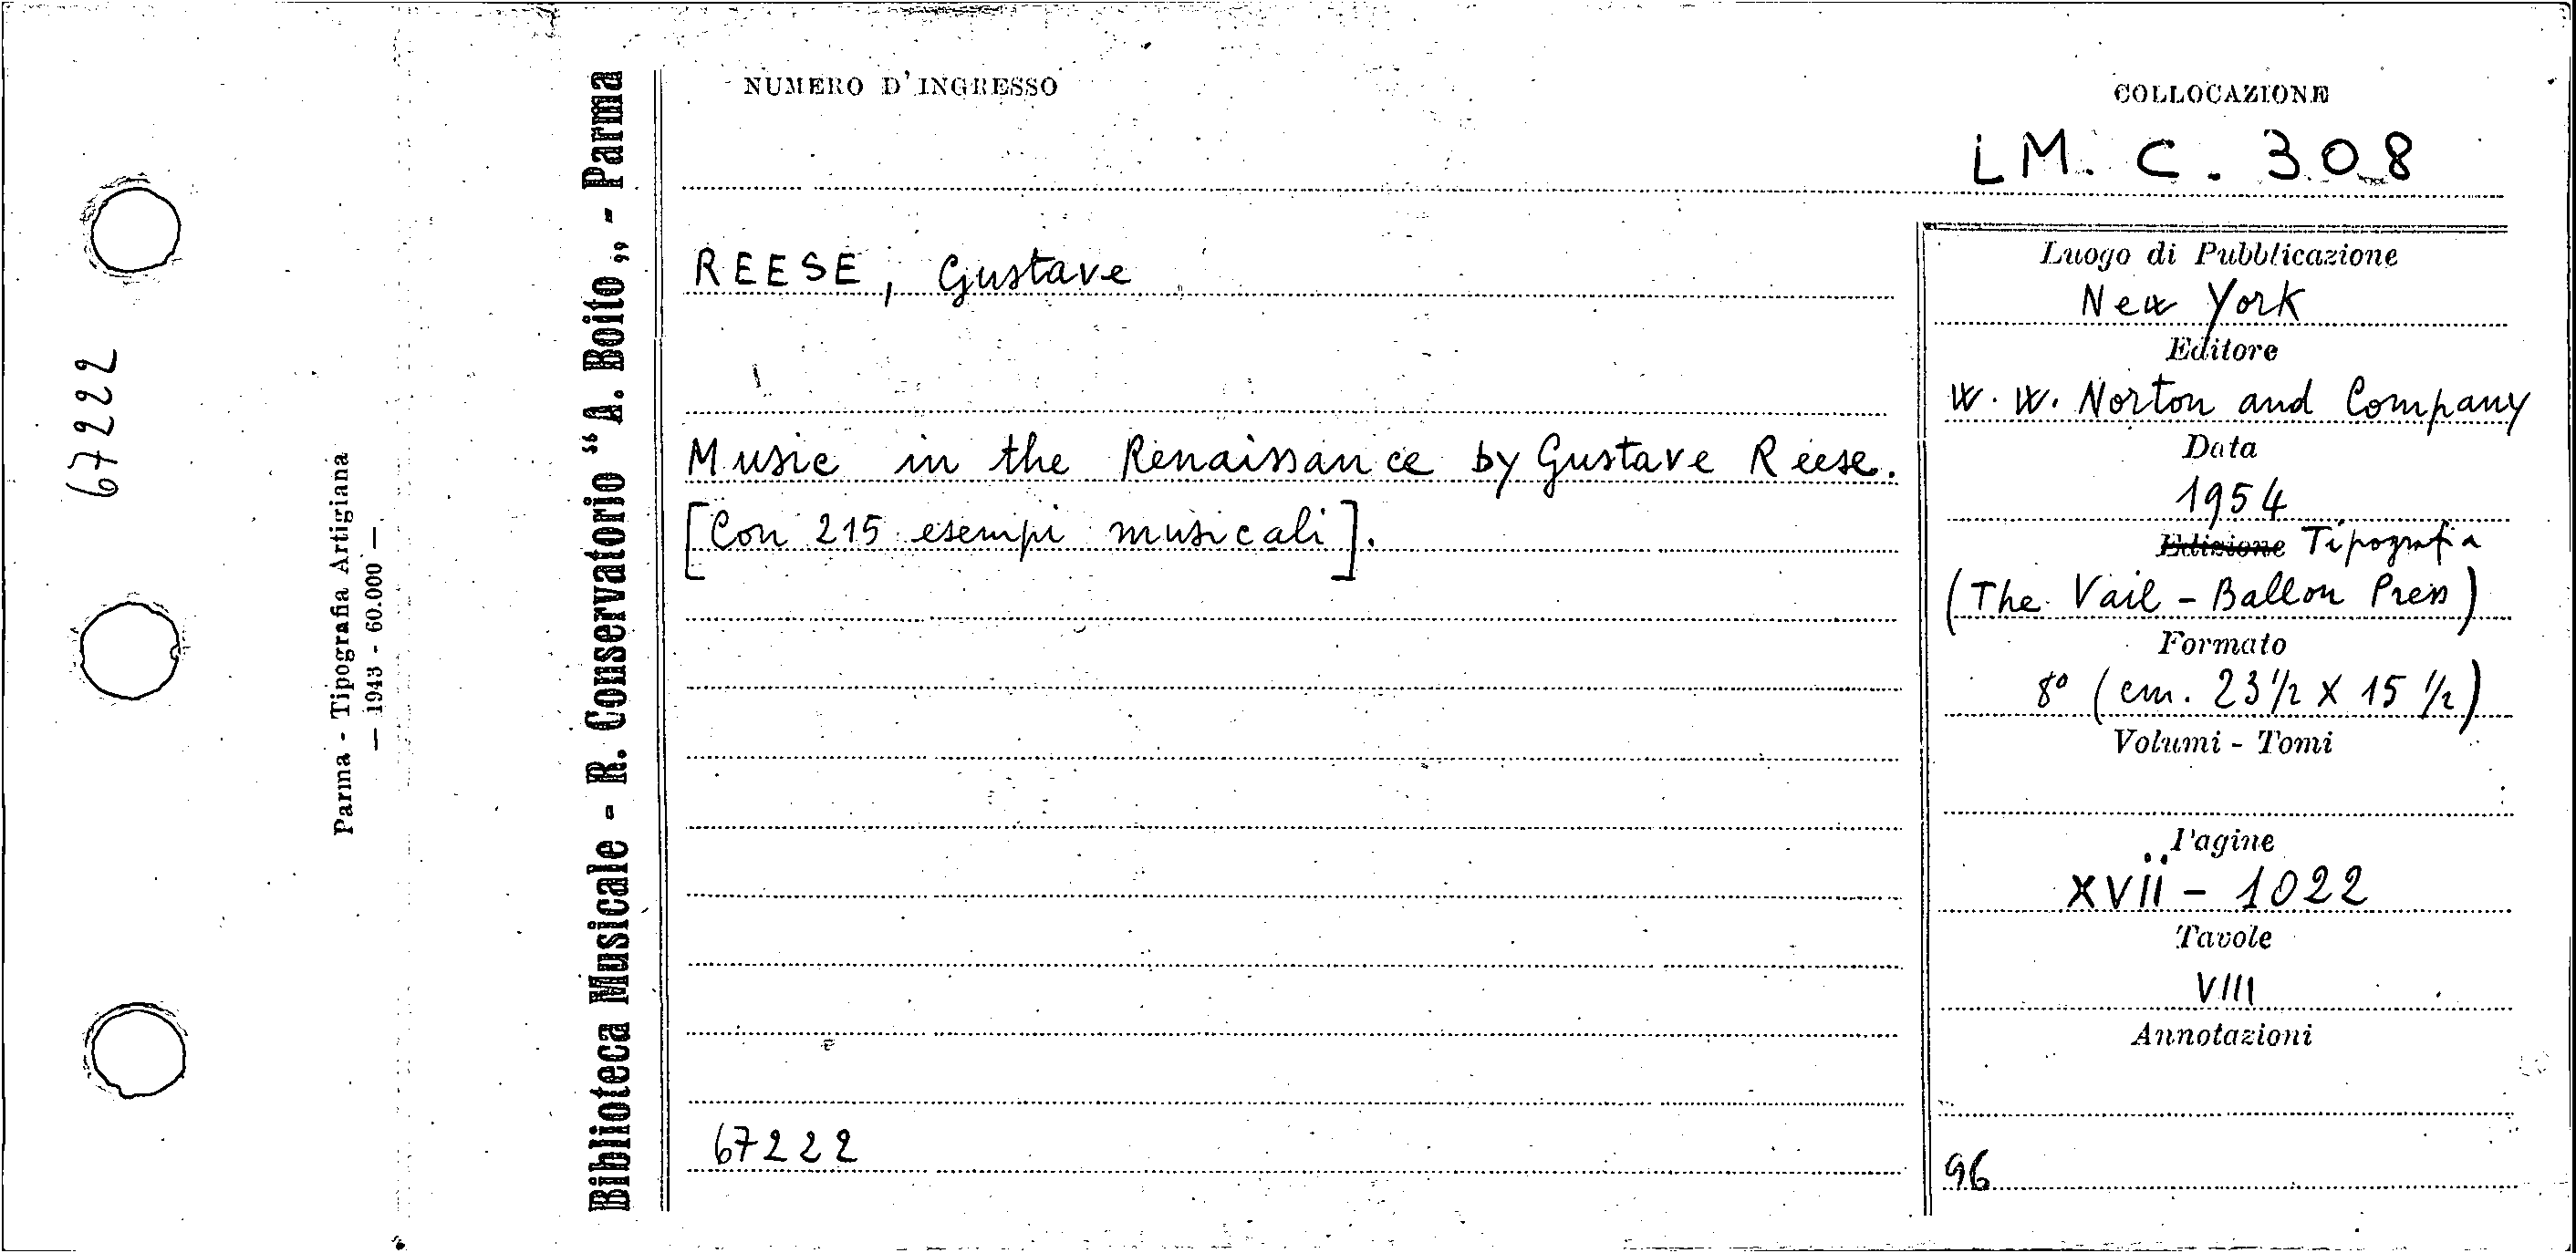 67222
Parma - Tipografia Artigiana
— 1943 - 60.000 —
Biblioteca Musicale - R. Conservatorio “A. Boito„ - Parma
NUMERO D'INGRESSO
COLLOCAZIONE
LM. C. 308
REESE, Gustave
Music in the Renaissance by Gustave Reese.
[Con 215 esempi musicali].
67222
Luogo di Pubblicazione
New York
Editore
W. W. Norton and Company
Data
1954
Edizione Tipografia
(The Vail - Ballou Press)
Formato
8° (cm. 23 1/2 X 15 1/2)
Volumi - Tomi
Pagine
XVii - 1022
Tavole
VIII
Annotazioni
96